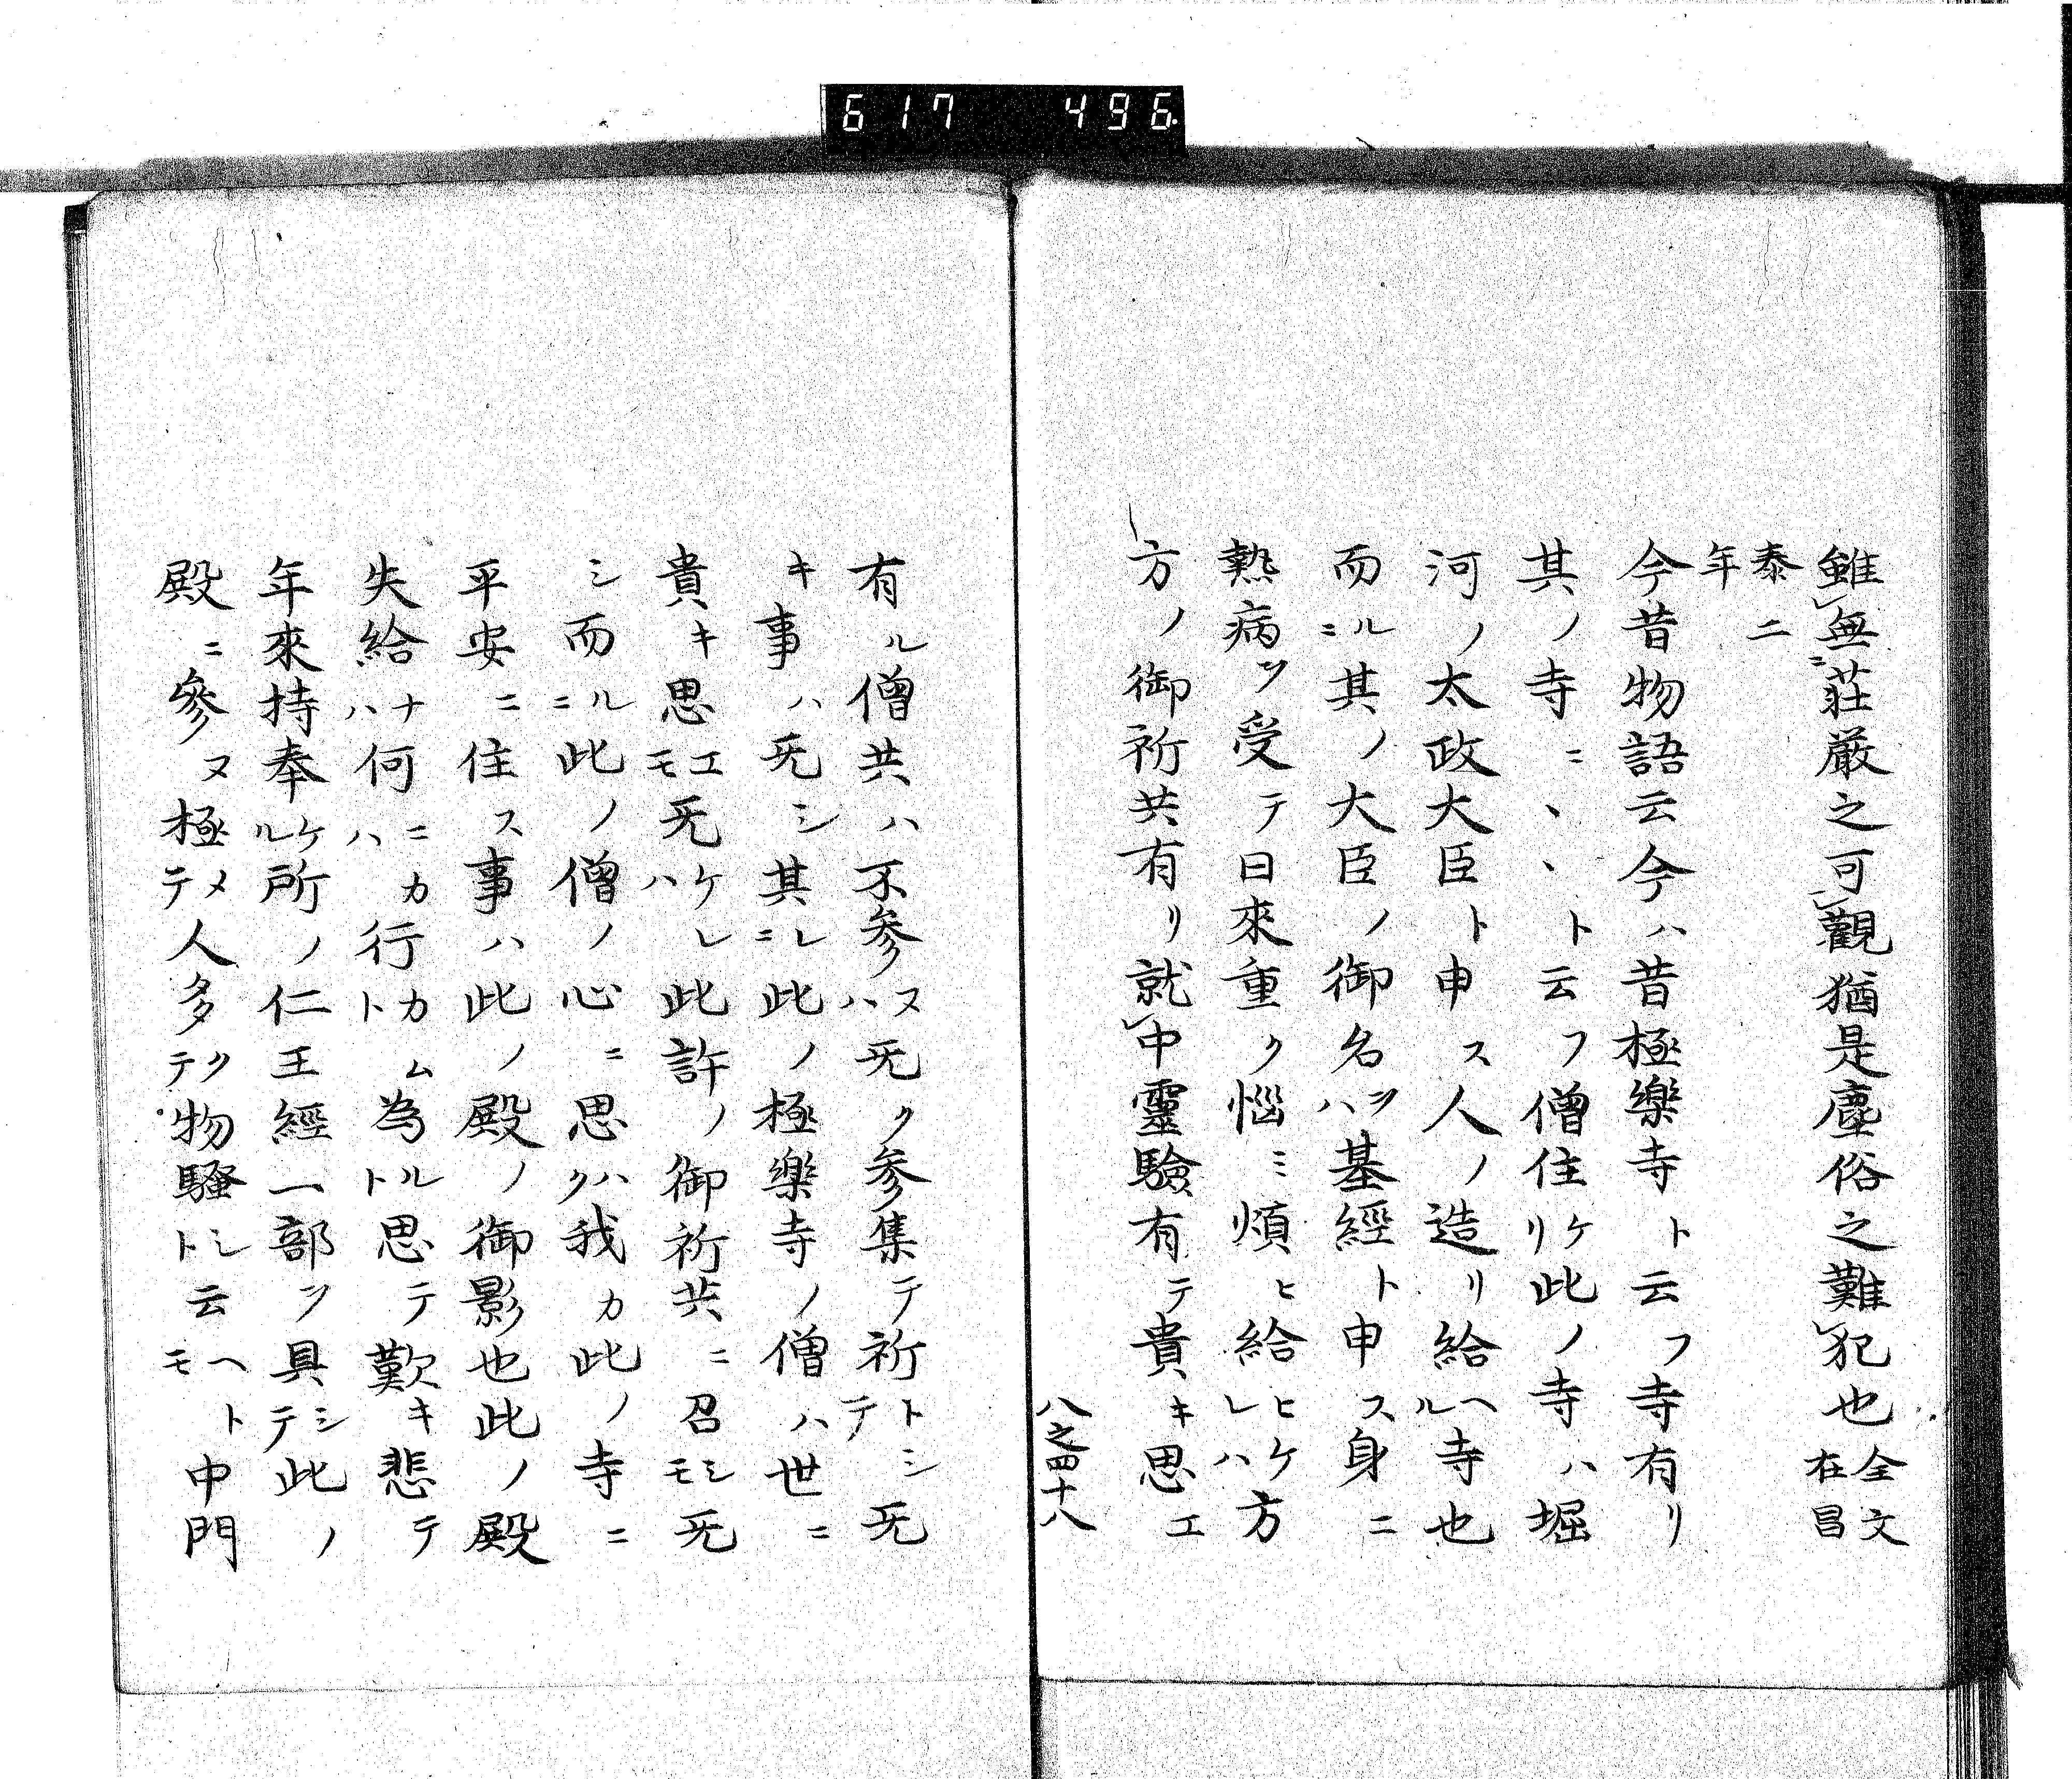 617 496
雖無ニ莊嚴之可觀猶是塵俗之難犯也全文在昌
泰二
年
今昔物語云今ハ昔極樂寺ト云フ寺有リ
其ノ寺ニヽヽト云フ僧住ケリ此ノ寺ハ堀
河ノ太政大臣ト申ス人ノ造リ給ヘル寺也
而ルニ其ノ大臣ノ御名ヲハ基經ト申ス身ニ
熱病ヲ受テ日來重ク惱ミ煩ヒ給ヒケレハ方
方ノ御祈共有リ就中靈驗有テ貴キ思エ
八之四十八
有ル僧共ハ不參ヌハ旡ク參集テ祈トシテ旡
キ事ハ旡シ其レニ此ノ極樂寺ノ僧ハ世ニ
貴キ思エモ旡ケレハ此許ノ御祈共ニ召シモ旡
シ而ルニ此ノ僧ノ心ニ思ハク我カ此ノ寺ニ
平安ニ住ス事ハ此ノ殿ノ御影也此ノ殿
失給ナハ何ニカハ行カムト為ルト思テ歎キ悲テ
年來持奉ケル所ノ仁王經一部ヲ具シテ此ノ
殿ニ參ヌ極メテ人多クテ物騷シト云ヘトモ中門